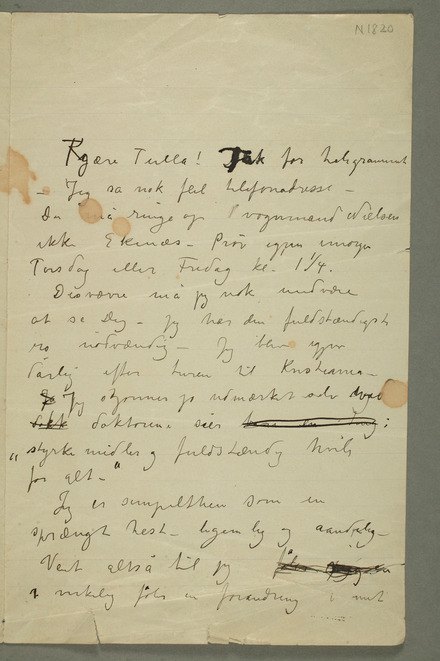 N 1820
Kjære Tulla! Tak for telegrammet
– Jeg sa nok feil telefonadresse –
Du må ringe op Vognmand Nielsen
ikke Ekenæs – Prøv igjen imorgen
Torsdag eller Fredag kl. 1 1/4.
Desværre må jeg nok undvære
at se Dig – Jeg har den fuldstændigste
ro nødvendig – Jeg blev igjen
dårlig efter turen til Kristiania –
Jeg skjønner jo udmærket selv hvad
doktorene sier :
„styrkemidler og fuldstændig hvile
for alt –“
Jeg er simpelthen som en
sprængt hest – legemlig og aandelig –
Vent altså til jeg
virkelig føler en forandring i mit